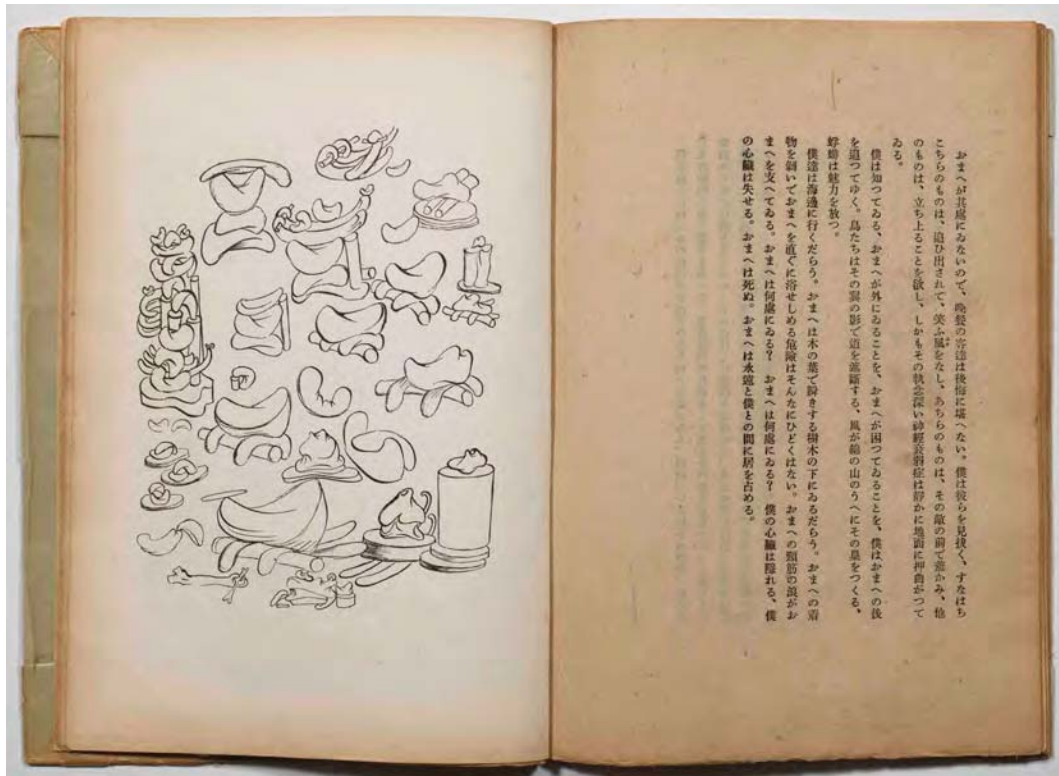 おまへが其處にゐないので、晩餐の客達は後悔に堪へない。僕は彼らを見拔く、すなはち
こちらのものは、追ひ出されて、笑ふ風をなし、あちらのものは、その敵の前で蹇かみ、他
のものは、立ち上ることを欲し、しかもその執念深い神經衰弱症は靜かに地面に押曲がつて
ゐる。
僕は知つてゐる、おまへが外にゐることを、おまへが困つてゐることを、僕はおまへの後
を追つてゆく。鳥たちはその翼の影で道を遮斷する、風が綿の山のうへにその巣をつくる、
蜉蝣は魅力を放つ。
僕達は海邊に行くだらう。おまへは木の葉で瞬きする樹木の下にゐるだらう。おまへの着
物を剝いでおまへを直ぐに浴せしめる危險はそんなにひどくはない。おまへの頸筋の浪がお
まへを支へてゐる。おまへは何處にゐる？　おまへは何處にゐる？　僕の心臟は隱れる、僕
の心臟は失せる。おまへは死ぬ。おまへは永遠と僕との間に居を占める。